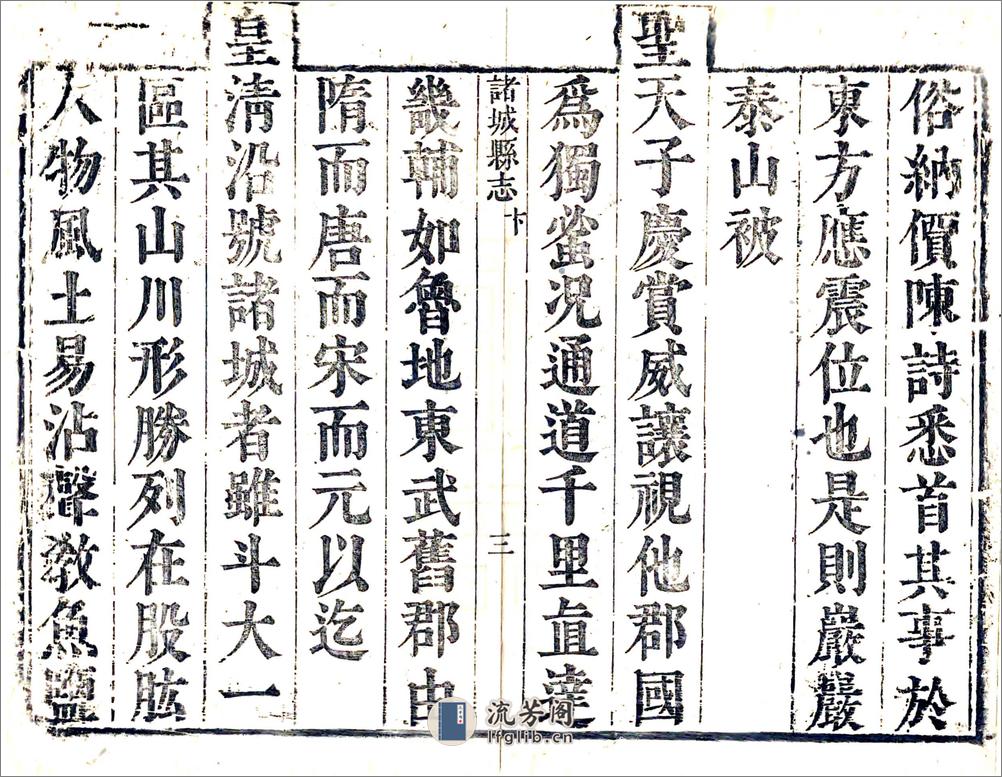 俗納價陳詩悉首其事於
東方應震位也是則巖巖
泰山被
聖天子慶賞威讓視他郡國
爲獨蚤况通道千里直達
諸城縣志 卞 三
畿輔如魯地東武舊郡由
隋而唐而宋而元以迄
皇淸沿號諸城者雖斗大一
區其山川形勝列在股肱
人物風土易沾聲敎魚鹽
流芳阁
lfglib.cn